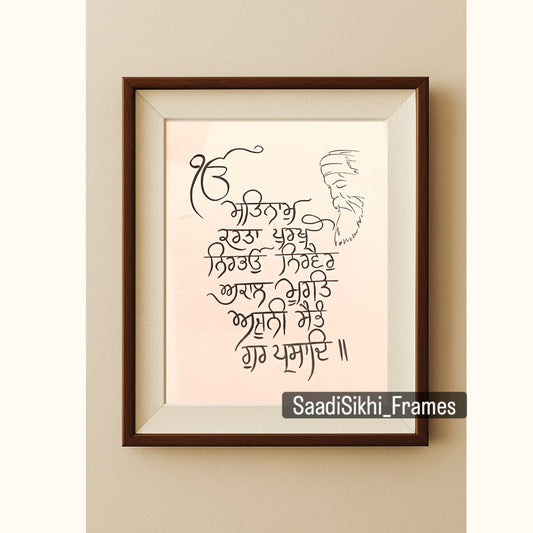 ੴ
ਸਤਿਨਾਮੁ
ਕਰਤਾ ਪੁਰਖੁ
ਨਿਰਭਉ ਨਿਰਵੈਰੁ
ਅਕਾਲ ਮੂਰਤਿ
ਅਜੂਨੀ ਸੈਭੰ
ਗੁਰ ਪ੍ਰਸਾਦਿ ॥
SaadiSikhi_Frames